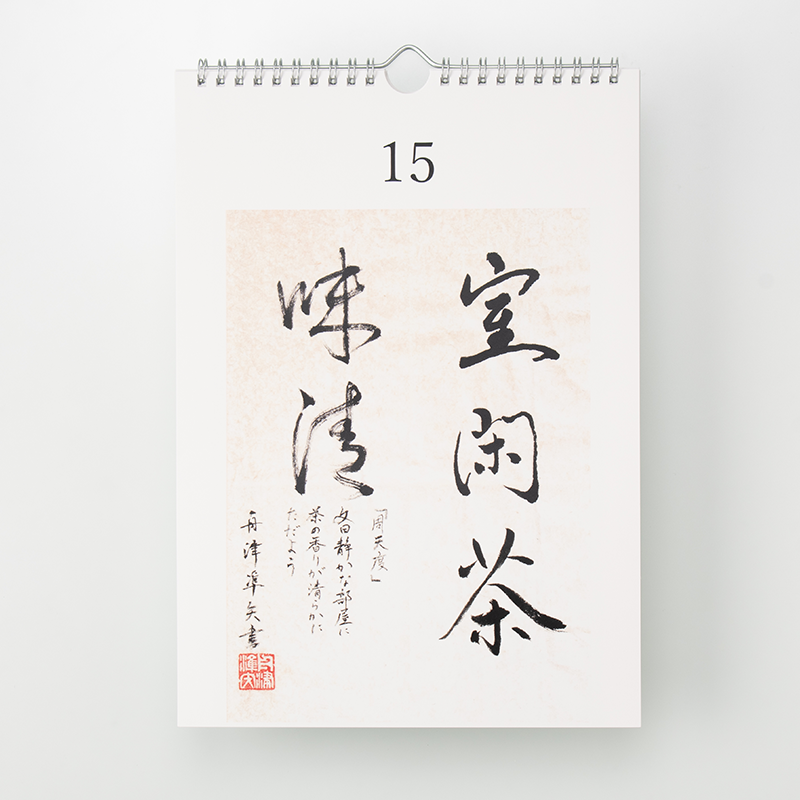 15
室閑茶
味清
「周天度」
静かな部屋に
茶の香りが清らかに
ただよう
舟津準矢書